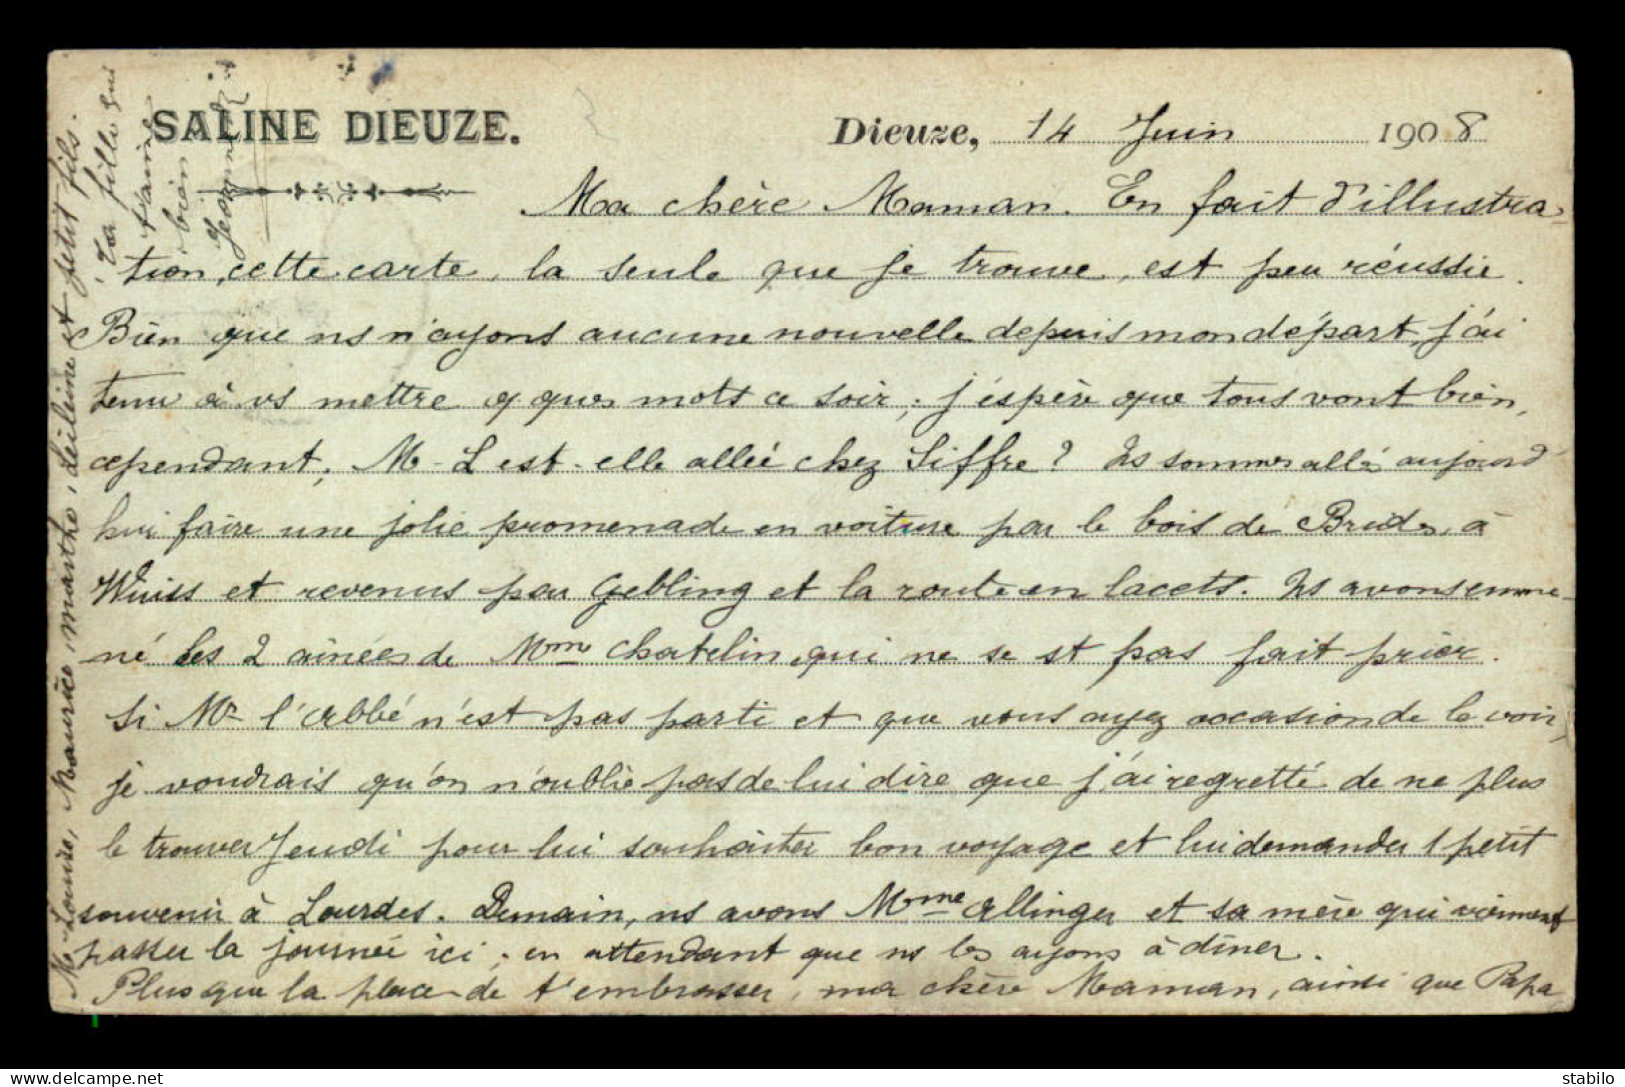 SALINE DIEUZE.
Dieuze, 14 Juin 1908
Ma chère Maman. En fait d'illustra-
tion, cette carte, la seule que je trouve, est peu réussie.
Bien que ns n'ayons aucune nouvelle depuis mon départ, j'ai
tenu à vs mettre qques mots ce soir; j'espère que tous vont bien,
cependant; M-L est-elle allée chez Siffre? Ns sommes allés aujourd'
hui faire une jolie promenade en voiture par le bois de Brides, à
Wuiss et revenus par Gebling et la route en lacets. Ns avons emme-
né les 2 aînées de Mme Chatelin, qui ne se st pas fait prier.
Si Mr l'Abbé n'est pas parti et que vous ayez occasion de le voir,
je voudrais qu'on n'oublie pas de lui dire que j'ai regretté de ne plus
le trouver Jeudi pour lui souhaiter bon voyage et lui demander 1 petit
souvenir à Lourdes. Demain, ns avons Mme Allinger et sa mère qui viennent
passer la journée ici; en attendant que ns les ayons à dîner.
Plus que la place de t'embrasser, ma chère Maman, ainsi que Papa
M-Louise, Maurice, Marthe, et petit fils.
Ta fille qui
t'aime
bien
stabilo